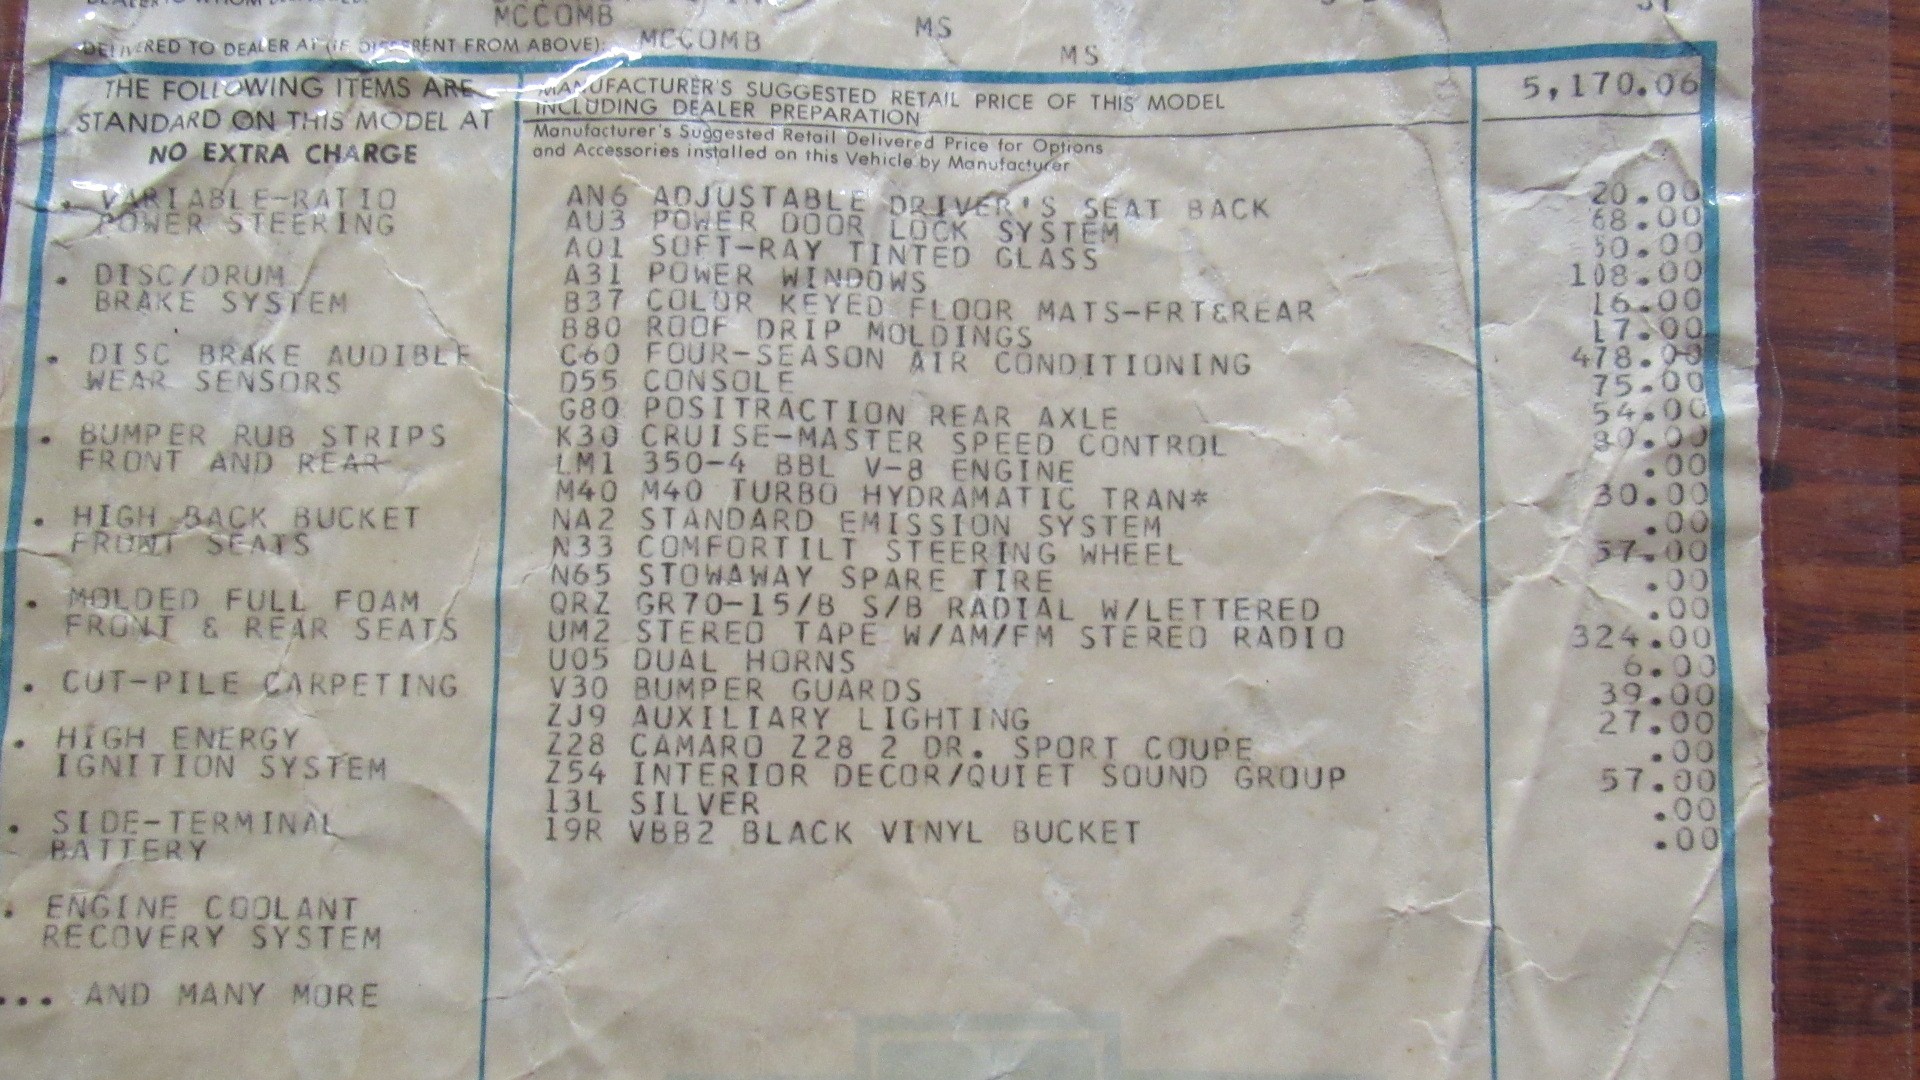 MCCOMB MS
DELIVERED TO DEALER AT (IF DIFFERENT FROM ABOVE): MCCOMB MS
THE FOLLOWING ITEMS ARE
STANDARD ON THIS MODEL AT
NO EXTRA CHARGE
• VARIABLE-RATIO
POWER STEERING
• DISC/DRUM
BRAKE SYSTEM
• DISC BRAKE AUDIBLE
WEAR SENSORS
• BUMPER RUB STRIPS
FRONT AND REAR
• HIGH BACK BUCKET
FRONT SEATS
• MOLDED FULL FOAM
FRONT & REAR SEATS
• CUT-PILE CARPETING
• HIGH ENERGY
IGNITION SYSTEM
• SIDE-TERMINAL
BATTERY
• ENGINE COOLANT
RECOVERY SYSTEM
... AND MANY MORE
MANUFACTURER'S SUGGESTED RETAIL PRICE OF THIS MODEL
INCLUDING DEALER PREPARATION 5,170.06
Manufacturer's Suggested Retail Delivered Price for Options
and Accessories installed on this Vehicle by Manufacturer
AN6 ADJUSTABLE DRIVER'S SEAT BACK 20.00
AU3 POWER DOOR LOCK SYSTEM 68.00
A01 SOFT-RAY TINTED GLASS 50.00
A31 POWER WINDOWS 108.00
B37 COLOR KEYED FLOOR MATS-FRT&REAR 16.00
B80 ROOF DRIP MOLDINGS 17.00
C60 FOUR-SEASON AIR CONDITIONING 478.00
D55 CONSOLE 75.00
G80 POSITRACTION REAR AXLE 54.00
K30 CRUISE-MASTER SPEED CONTROL 80.00
LM1 350-4 BBL V-8 ENGINE .00
M40 M40 TURBO HYDRAMATIC TRAN* 30.00
NA2 STANDARD EMISSION SYSTEM .00
N33 COMFORTILT STEERING WHEEL 57.00
N65 STOWAWAY SPARE TIRE .00
QRZ GR70-15/B S/B RADIAL W/LETTERED .00
UM2 STEREO TAPE W/AM/FM STEREO RADIO 324.00
U05 DUAL HORNS 6.00
V30 BUMPER GUARDS 39.00
ZJ9 AUXILIARY LIGHTING 27.00
Z28 CAMARO Z28 2 DR. SPORT COUPE .00
Z54 INTERIOR DECOR/QUIET SOUND GROUP 57.00
13L SILVER .00
19R VBB2 BLACK VINYL BUCKET .00